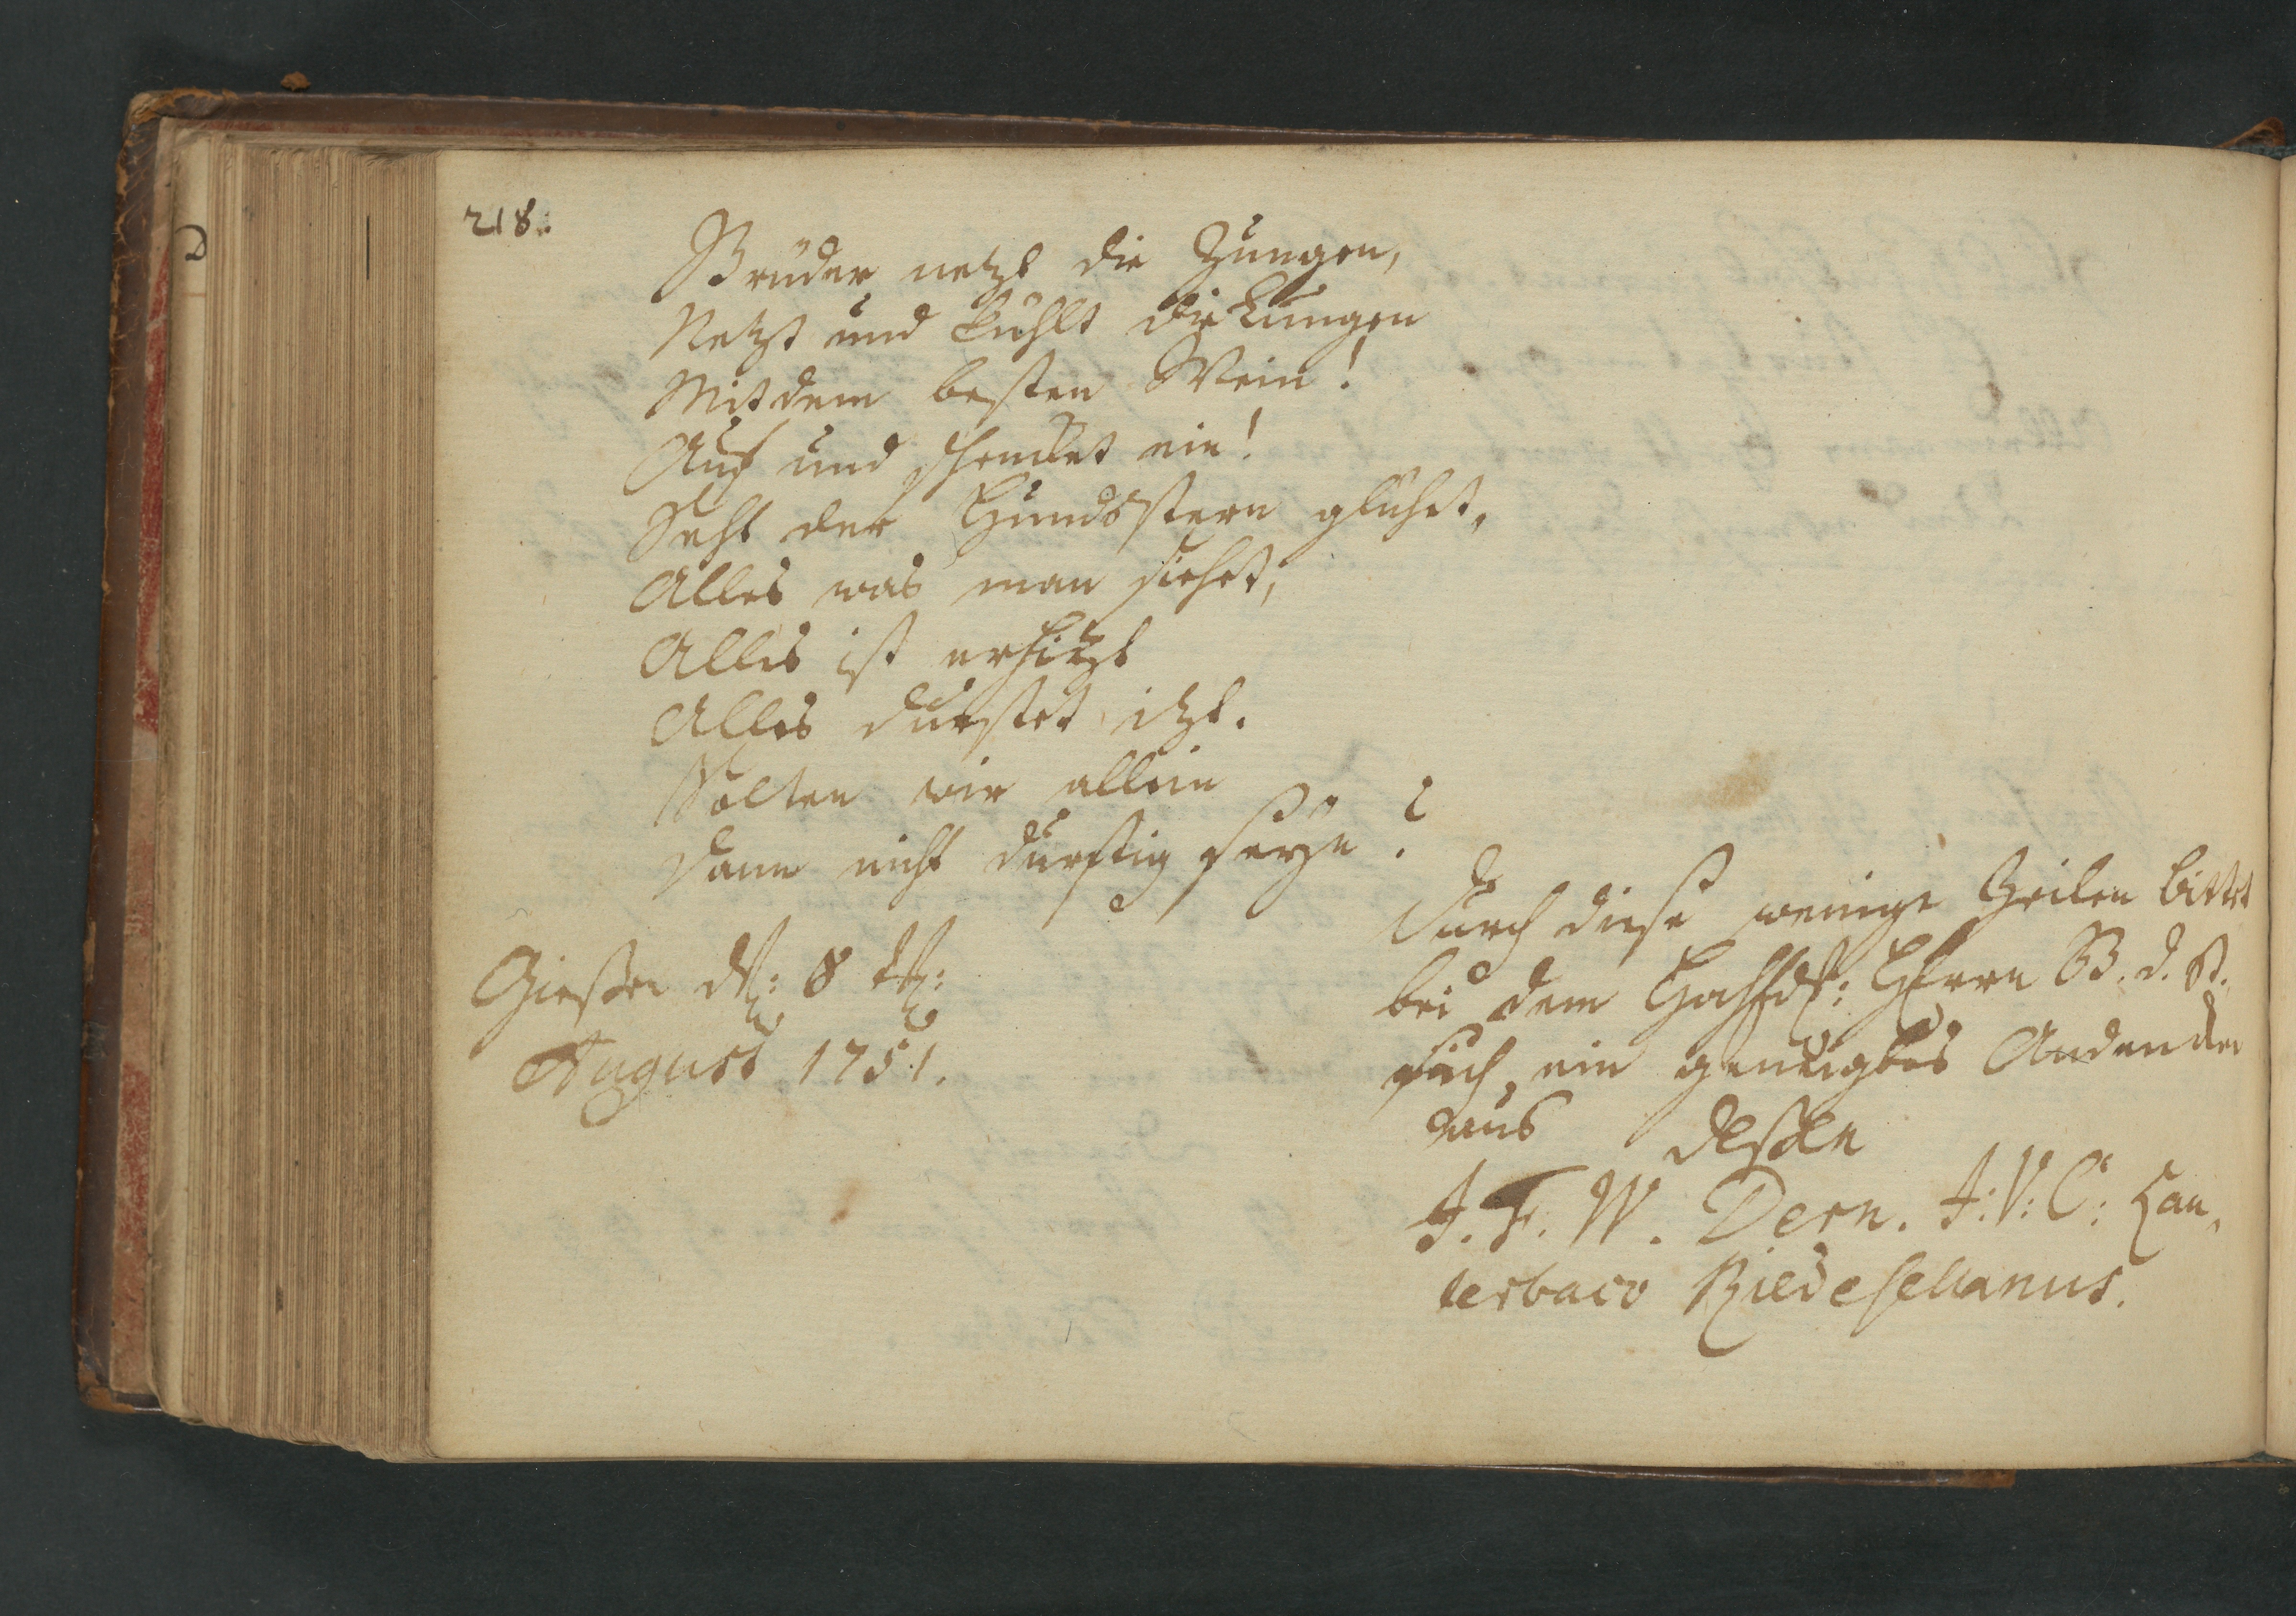 218.
Brüder netzt die Zungen,
Netzt und kühlt die Lungen
Mit dem besten Wein!
Auf und schencket ein!
Seht der Hundsstern glühet,
Alles was man siehet,
Alles ist erhitzt
Alles durstet itzt.
Solten wir allein
Dann nicht durstig seyn?
Giessen d: 8 t:
August 1751.
Durch diese wenige Zeilen bittet
bei dem Herrn B. d. St.
sich ein geneigtes Andencken
aus dessen
J. F. W. Dern. J: V: C: Lau,
terbaco Riedesellanus.
D